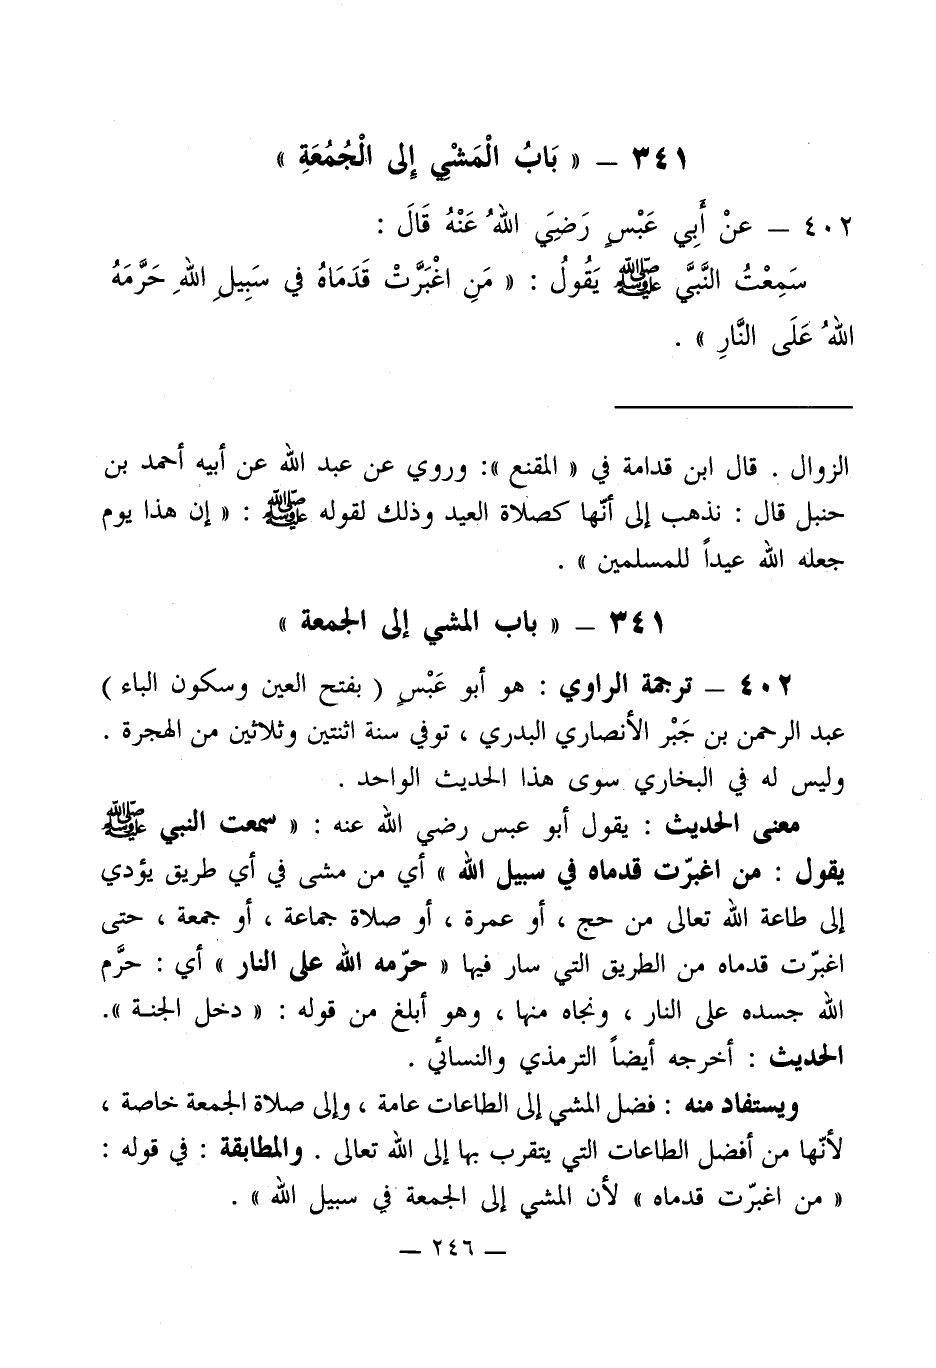 ٣٤١ – « بَابُ الْمَشْيِ إِلى الْجُمُعَةِ »
٤٠٢ – عنْ أَبِي عَبْسٍ رَضِيَ اللهُ عَنْهُ قَالَ :
سَمِعْتُ النَّبَّي ﷺ يَقُولُ : « مَنِ اغْبَرَّتْ قَدَمَاهُ في سَبِيلِ اللهِ حَرَّمَهُ
اللهُ عَلَى النَّارِ » .
الزوال . قال ابن قدامة في « المقنع »: وروي عن عبد الله عن أبيه أحمد بن
حنبل قال : نذهب إلى أنّها كصلاة العيد وذلك لقوله ﷺ : « إن هذا يوم
جعله الله عيداً للمسلمين » .
٣٤١ – « باب المشي إلى الجمعة »
٤٠٢ – ترجمة الراوي : هو أبو عَبْسٍ ( بفتح العين وسكون الباء )
عبد الرحمن بن جَبْر الأنصاري البدري ، توفي سنة اثنتين وثلاثين من الهجرة .
وليس له في البخاري سوى هذا الحديث الواحد .
معنى الحديث : يقول أبو عبس رضي الله عنه : « سمعت النبي ﷺ
يقول : من اغبرّت قدماه في سبيل الله » أي من مشى في أي طريق يؤدي
إلى طاعة الله تعالى من حج ، أو عمرة ، أو صلاة جماعة ، أو جمعة ، حتى
اغبرّت قدماه من الطريق التي سار فيها « حرّمه الله على النار » أي : حرَّم
الله جسده على النار ، ونجاه منها ، وهو أبلغ من قوله : « دخل الجنة ».
الحديث : أخرجه أيضاً الترمذي والنسائي .
ويستفاد منه : فضل المشي إلى الطاعات عامة ، وإلى صلاة الجمعة خاصة ،
لأنّها من أفضل الطاعات التي يتقرب بها إلى الله تعالى . والمطابقة : في قوله :
« من اغبرّت قدماه » لأن المشي إلى الجمعة في سبيل الله » .
– ٢٤٦ –